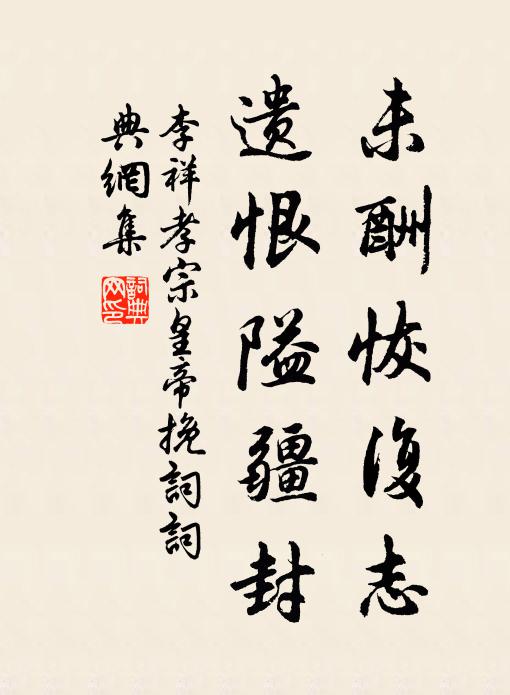 未酬恢復志
遗恨隘疆封
李祥孝宗皇帝挽詞詞
典網集
詞典
网印